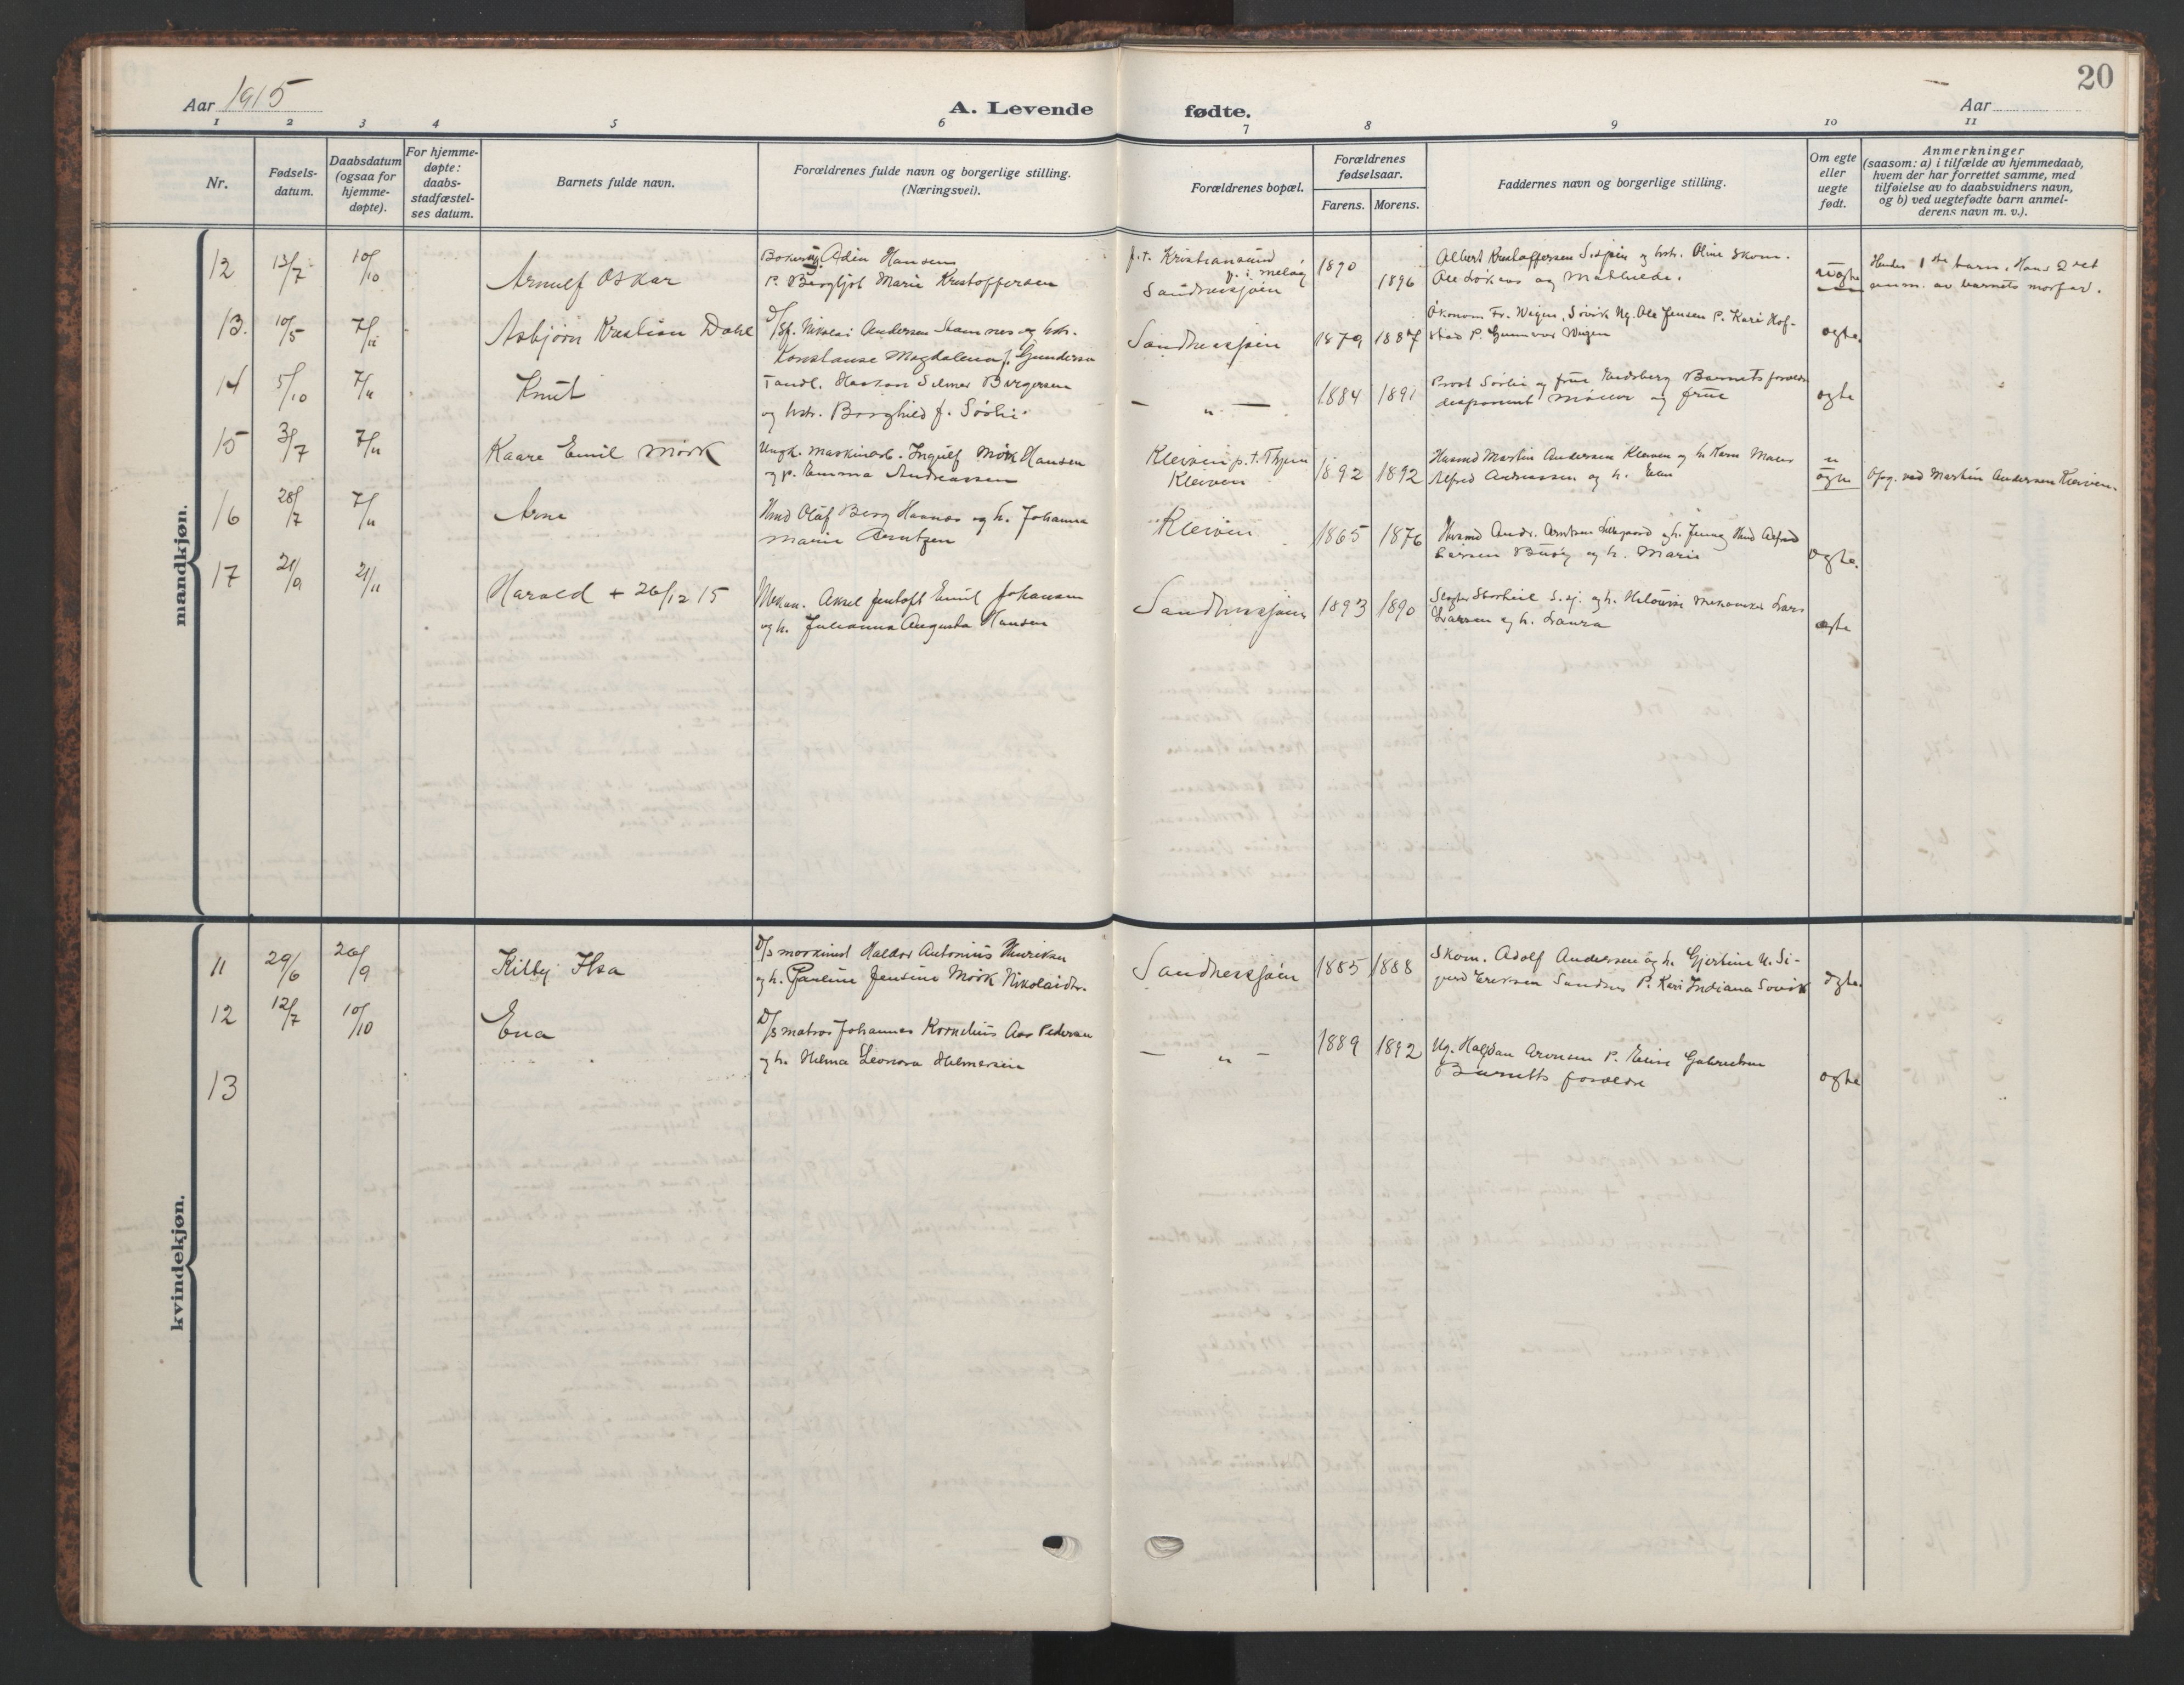 20
Aar 1915
A. Levende fødte.
Aar
1 2 3 4 5 6 7 8 9 10 11
Nr.
Fødsels-
datum.
Daabsdatum
(ogsaa for
hjemme-
døpte).
For hjemme-
døpte:
daabs-
stadfæstel-
ses datum.
Barnets fulde navn.
Forældrenes fulde navn og borgerlige stilling.
(Næringsvei).
Forældrenes bopæl.
Forældrenes
fødselsaar.
Farens. Morens.
Faddernes navn og borgerlige stilling.
Om egte
eller
uegte
født.
Anmerkninger
(saasom: a) i tilfælde av hjemmedaab,
hvem der har forrettet samme, med
tilføielse av to daabsvidners navn,
og b) ved uegtefødte barn anmel-
derens navn m. v.).
mandkjøn.
12 13/7 10/10 Arnulf Oskar
Adin Hansen
P. Bergljot Marie Kristoffersen
p. t. Kristiansund
p. i meløy
Sandnessjøen
1890 1896
Albert Kristoffersen og hstr. Oline Skom.
Ole og Mathilde.
uegte
Hendes 1ste barn, Hans 2det
anm. av barnets morfar.
13. 10/5 7/11 Asbjørn Kristian Dahl
Nikolai Andersen Stamnes og hstr.
Konstanse Magdalena f. Gundersen
Sandnessjøen
1879 1887
Økonom Fr. Wigen, Søvik Ug. Ole Jensen P. Kari Hof-
stad P. Gunnvor Wigen
egte.
14 5/10 7/11 Knut
Tandl. Haakon Selmer Birgersen
og hstr. Borghild f. Sørlie.
— " —
1884 1891
Provst Sørlie og frue Barnets forældre
disponent og frue
egte
15 3/7 7/11 Kaare Emil Mørk
Ungk. maskinarb. Ingulf Mörk Hansen
og p. Emma Andreassen
Kleiven p. t. Thjem
Kleiven
1892 1892
Husmd Martin Andersen Kleiven og h. Karen
Alfred Andreassen og h.
u
egte
Opg. ved Martin Andersen Kleiven.
16 28/7 7/11 Arne
Hmd Oluf Berg Hannes og h. Johanna
Marie Arntzen
Kleiven
1865 1876
Husmd Andr. Arntsen og h. Jenny Hmd Alfred
Larsen og h. Marie
egte.
17 21/9 21/11 Harald + 26/12 15
Mekan. Aksel Jentoft Emil Johansen
og h. Julianna Augusta Hansen
Sandnessjøen
1893 1890
Slagter S.sj. og h. Mekaniker Lars
Larsen og h. Laura
egte
kvindekjøn.
11 29/6 26/9 Kitty Ilsa
D/S maskinist Haldor Antonius Henriksen
og h. Pauline Jensine Mörk Nikolaidtr.
Sandnessjøen
1885 1888
Skom. Adolf Andersen og h. Gjertine U. Si-
gurd Eriksen Sandnes P. Kari Indiana Søvik
egte.
12 12/7 10/10 Eva
D/S matros Johannes Kornelius Aas Pedersen
og h. Helma Leonora Helmersen
— " —
1889 1892
Ug. Halfdan Arensen P. Gabrielsen
Barnets forældre
egte
13